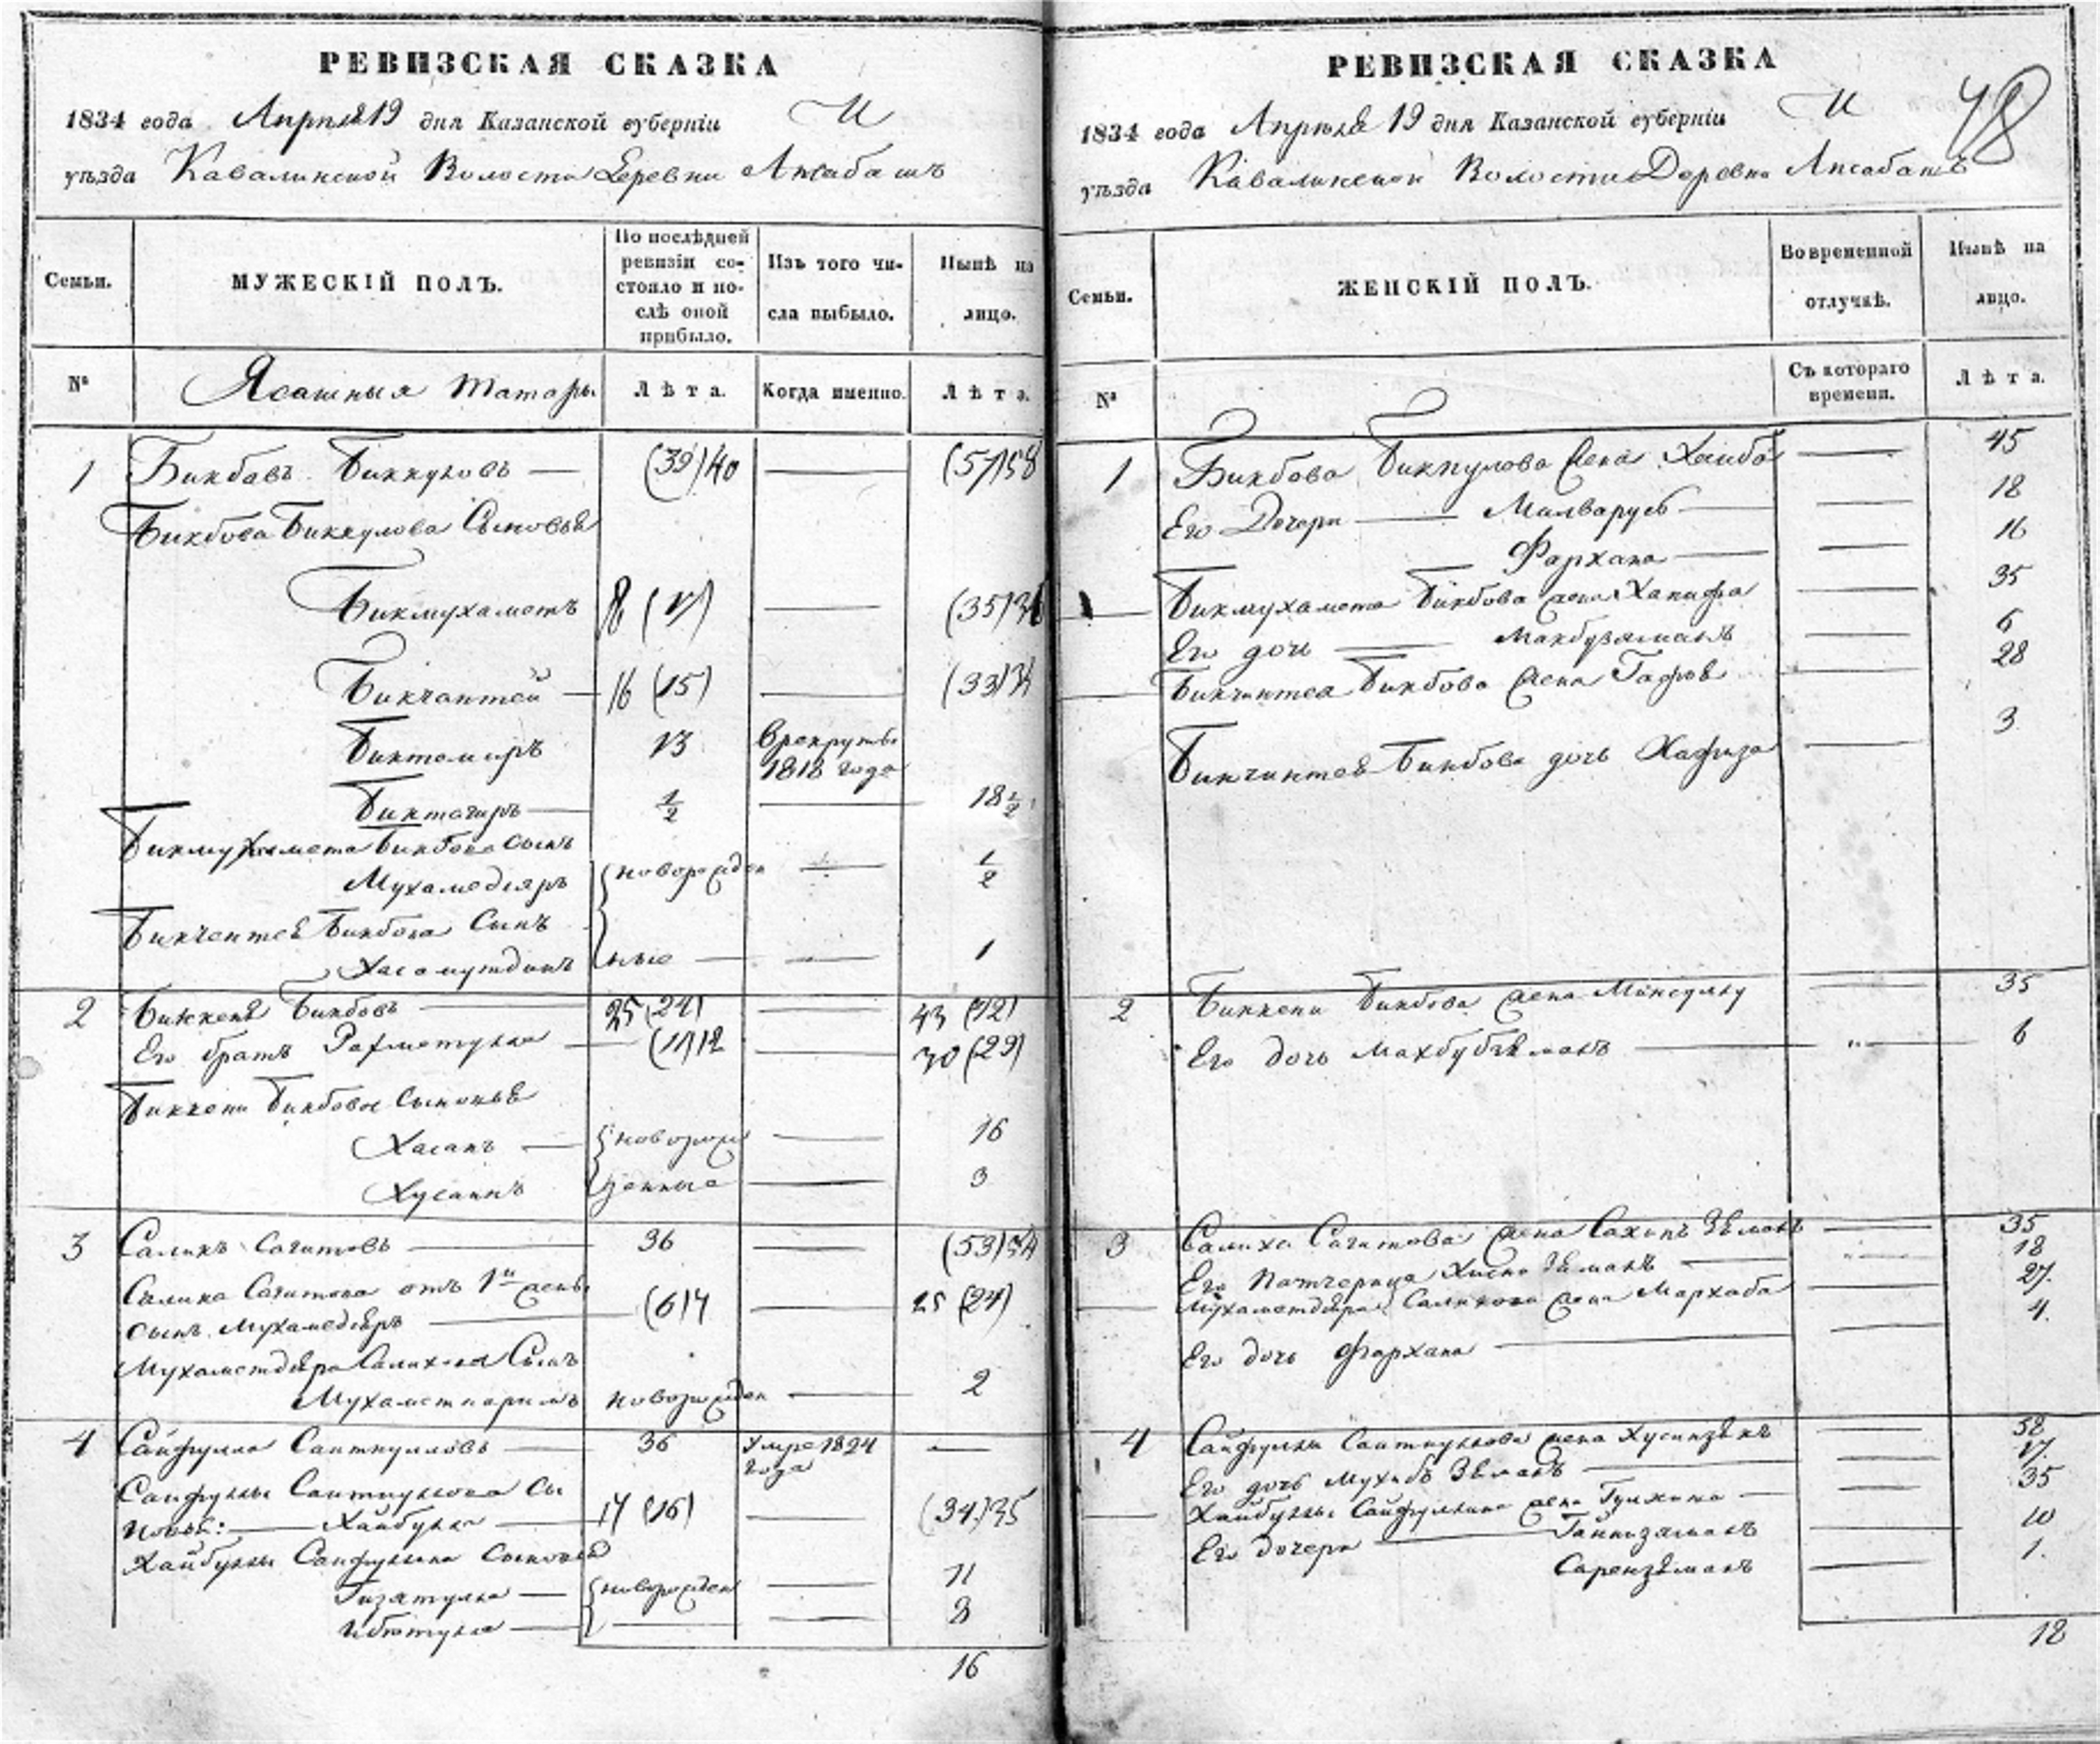 РЕВИЗСКАЯ СКАЗКА
1834 года Апреля 19 дня Казанской губерніи И
уѣзда Кавалинской Волости Деревни Аксабашъ
Семьи. МУЖЕСКІЙ ПОЛЪ. По послѣдней ревизіи состояло и послѣ оной прибыло. Изъ того числа выбыло. Нынѣ на лицо.
№ Ясашныя Татары Лѣта. Когда именно. Лѣта.
1 Бикбовъ Биккуловъ — (39) 40 — (57) 58
Бикбова Биккулова Сыновья
Бикмухаметъ 18 (17) — (35) 36
Бикчантей — 16 (15) — (33) 34
Биктемиръ 13 Врекруты
1818 года
Биктагиръ — ½ — 18 ½
Бикмухамета Бикбова сынъ
Мухамедяръ новорожден — ½
Бикчентея Бикбова Сынъ
Хасамутдинъ ные — — 1
2 Биккеня Бикбовъ — 25 (24) — 43 (42)
Его братъ Рахметулла — (11) 12 — 30 (29)
Биккени Бикбова Сыновья
Хасанъ — новорож — 16
Хусаинъ денные — 3
3 Салихъ Сагитовъ — 36 — (53) 54
Салиха Сагитова отъ 1й жены
сынъ Мухамедьяръ — (6) 7 — 25 (24)
Мухаметдьяра Салихова Сынъ
Мухаметкаримъ новорожден — 2
4 Сайфулла Саиткуловъ — 36 Умре 1824 —
года
Сайфуллы Саиткулова Сы
новья: — Хайбулла — 17 (16) — (34) 35
Хайбуллы Сайфуллина сыновья
Гизатулла — новорожден — 11
— — — 8
16
РЕВИЗСКАЯ СКАЗКА
48
1834 года Апреля 19 дня Казанской губерніи И
уѣзда Кавалинской Волости Деревни Аксабашъ
Семьи. ЖЕНСКІЙ ПОЛЪ. Во временной отлучкѣ. Нынѣ на лицо.
№ Съ котораго времени. Лѣта.
1 Бикбова Биккулова жена Хаиба — 45
Его Дочери — — 18
Фархана — — 16
Бикмухамета Бикбова жена Ханифа — 35
Его дочь — Макбузяманъ — 6
Бикчинтея Бикбова жена — 28
Бикчинтея Бикбова дочь Хафиза — 3
2 Биккени Бикбова жена — 35
Его дочь Махбубзяманъ — — 6
3 Салиха Сагитова жена Сахипъ Зяманъ — 35
Его Патчерица — 18
Мухаметдьяра Салихова жена Мархаба — 27
Его дочь Фархана — — 4
4 Сайфуллы Саиткулова жена — 52
Его дочь Мухибъ Зяманъ — — 17
Хайбуллы Сайфуллина жена — — 35
Его дочери — — 10
Сарензяманъ — 1
18